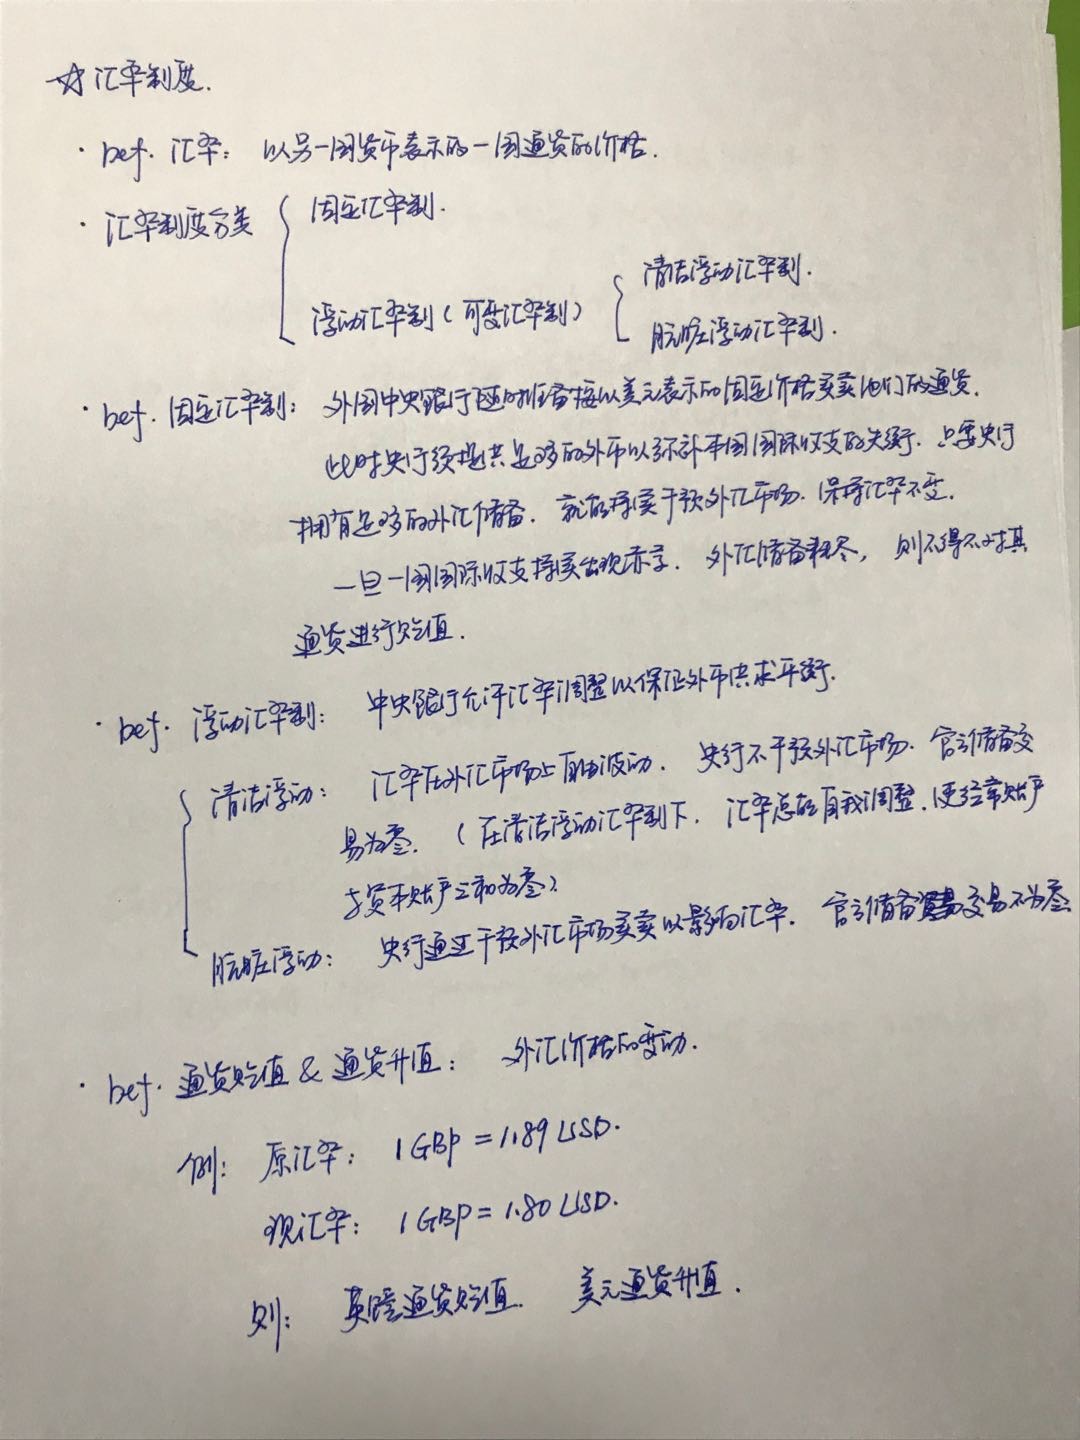 ☆ 汇率制度.
· def. 汇率: 以另一国货币表示的一国通货的价格.
· 汇率制度分类 { 固定汇率制.
浮动汇率制 (可变汇率制) { 清洁浮动汇率制.
肮脏浮动汇率制.
· def. 固定汇率制: 外国中央银行随时准备按以美元表示的固定价格买卖他们的通货.
此时央行须提供足够的外币以弥补本国国际收支的失衡. 只要央行
拥有足够的外汇储备. 就能持续干预外汇市场. 保持汇率不变.
一旦一国国际收支持续出现赤字. 外汇储备耗尽, 则不得不对其
通货进行贬值.
· def. 浮动汇率制: 中央银行允许汇率调整以保证外币供求平衡.
{ 清洁浮动: 汇率在外汇市场上自由波动. 央行不干预外汇市场. 官方储备交
易为零. (在清洁浮动汇率制下. 汇率总能自我调整. 使经常账户
与资本账户之和为零)
肮脏浮动: 央行通过干预外汇市场买卖以影响汇率. 官方储备交易不为零
· def. 通货贬值 & 通货升值: 外汇价格的变动.
例: 原汇率: 1 GBP = 1.89 USD.
现汇率: 1 GBP = 1.80 USD.
则: 英镑通货贬值. 美元通货升值.